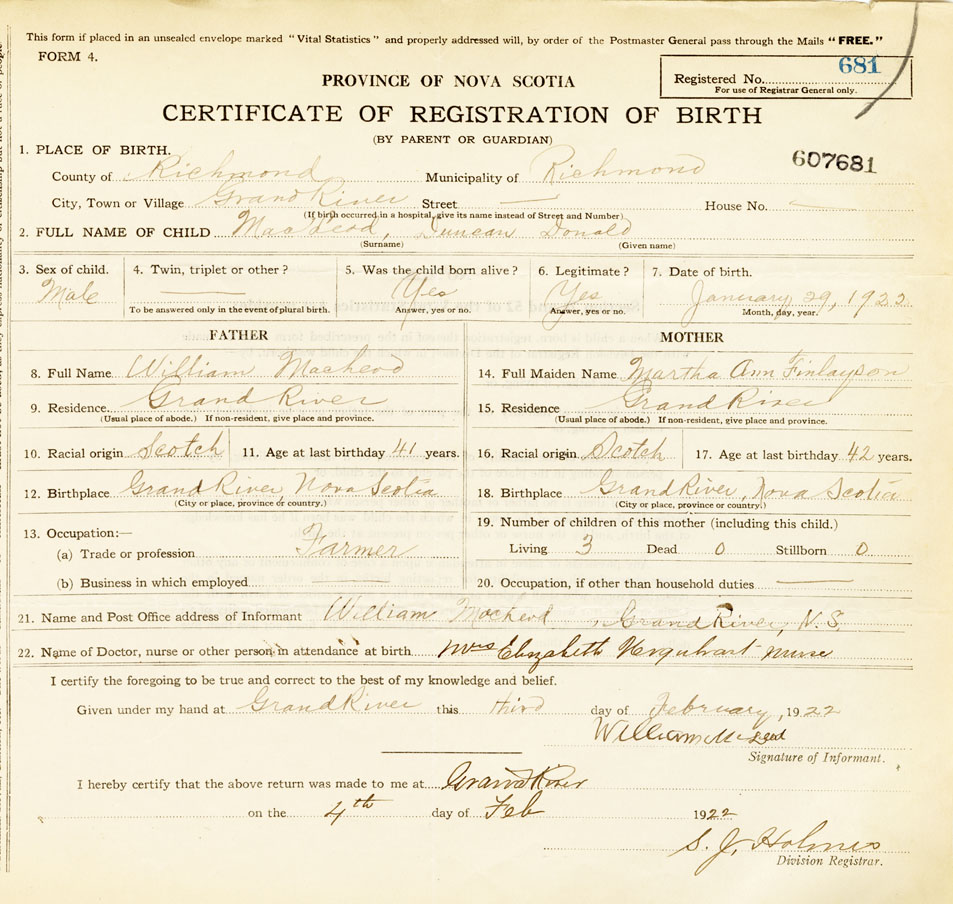 This form if placed in an unsealed envelope marked "Vital Statistics" and properly addressed will, by order of the Postmaster General pass through the Mails "FREE."
FORM 4.
681
PROVINCE OF NOVA SCOTIA
Registered No.
For use of Registrar General only.
CERTIFICATE OF REGISTRATION OF BIRTH
(BY PARENT OR GUARDIAN)
1. PLACE OF BIRTH.
607681
County of Richmond Municipality of Richmond
City, Town or Village Grand River Street — House No. —
(If birth occurred in a hospital, give its name instead of Street and Number)
2. FULL NAME OF CHILD MacLeod, Duncan Donald
(Surname) (Given name)
3. Sex of child. 4. Twin, triplet or other? 5. Was the child born alive? 6. Legitimate? 7. Date of birth.
Male — Yes Yes January 29, 1922
To be answered only in the event of plural birth. Answer, yes or no. Answer, yes or no. Month, day, year.
FATHER MOTHER
8. Full Name William MacLeod 14. Full Maiden Name Martha Ann Finlayson
9. Residence. Grand River 15. Residence Grand River
(Usual place of abode.) If non-resident, give place and province. (Usual place of abode.) If non-resident, give place and province.
10. Racial origin Scotch 11. Age at last birthday 41 years. 16. Racial origin Scotch 17. Age at last birthday 42 years.
12. Birthplace Grand River Nova Scotia 18. Birthplace Grand River, Nova Scotia
(City or place, province or country.) (City or place, province or country.)
13. Occupation:— 19. Number of children of this mother (including this child.)
(a) Trade or profession Farmer Living 3 Dead 0 Stillborn 0
(b) Business in which employed — 20. Occupation, if other than household duties —
21. Name and Post Office address of Informant William MacLeod, Grand River, N.S.
22. Name of Doctor, nurse or other person in attendance at birth Mrs Elizabeth Verquhart nurse
I certify the foregoing to be true and correct to the best of my knowledge and belief.
Given under my hand at Grand River this third day of February, 1922
William McLeod
Signature of Informant.
I hereby certify that the above return was made to me at Grand River
on the 4th day of Feb 1922
S. J. Holmes
Division Registrar.